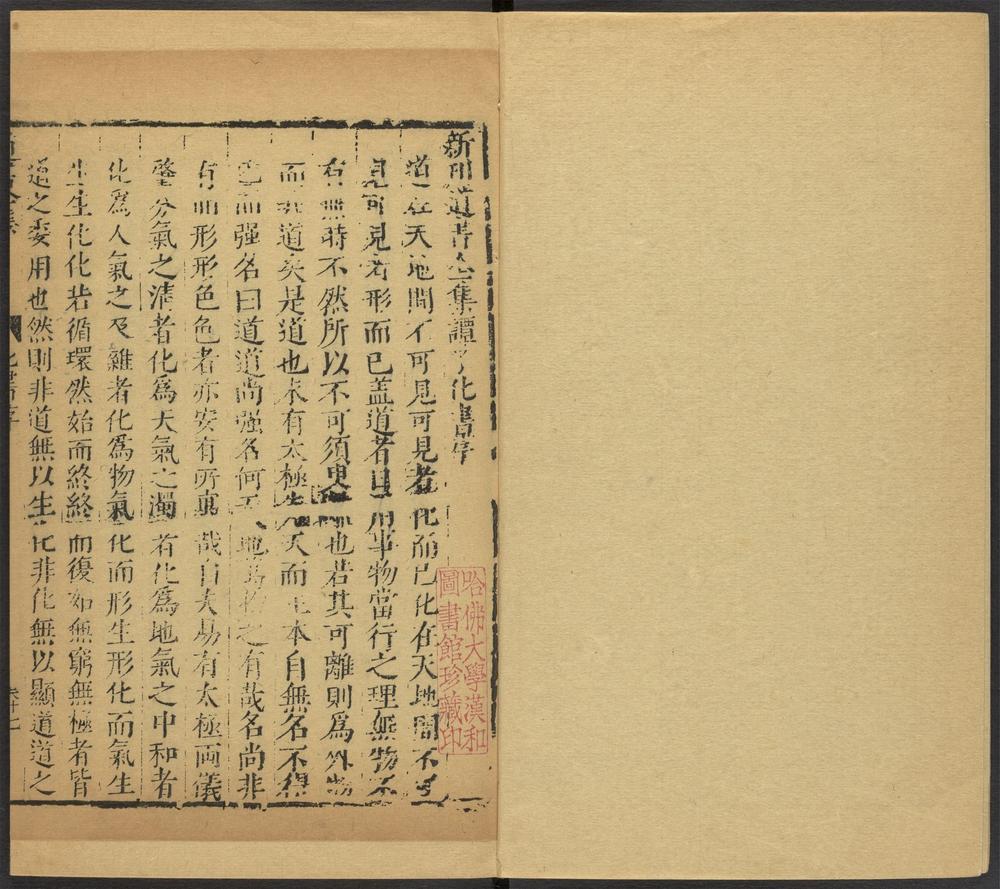 新刊道書全集譚子化書序
道在天地間不可見可見者化而已化在天地間不可
見可見者形而已盖道者日用事物當行之理無物不
有無時不然所以不可須臾離也若其可離則爲外物
而非道矣是道也未有太極先天而生本自無名不得
已而强名曰道道尚强名何天地萬物之有哉名尚非
有而形形色色者亦安有所真哉自太易有太極両儀
肇分氣之清者化爲天氣之濁者化爲地氣之中和者
化爲人氣之雜者化爲物氣化而形生形化而氣生
生生化化若循環然始而終終而復如無窮無極者皆
道之委用也然則非道無以生化非化無以顯道道之
道書全集
化書序
卷十七
哈佛大學漢和
圖書館珍藏印